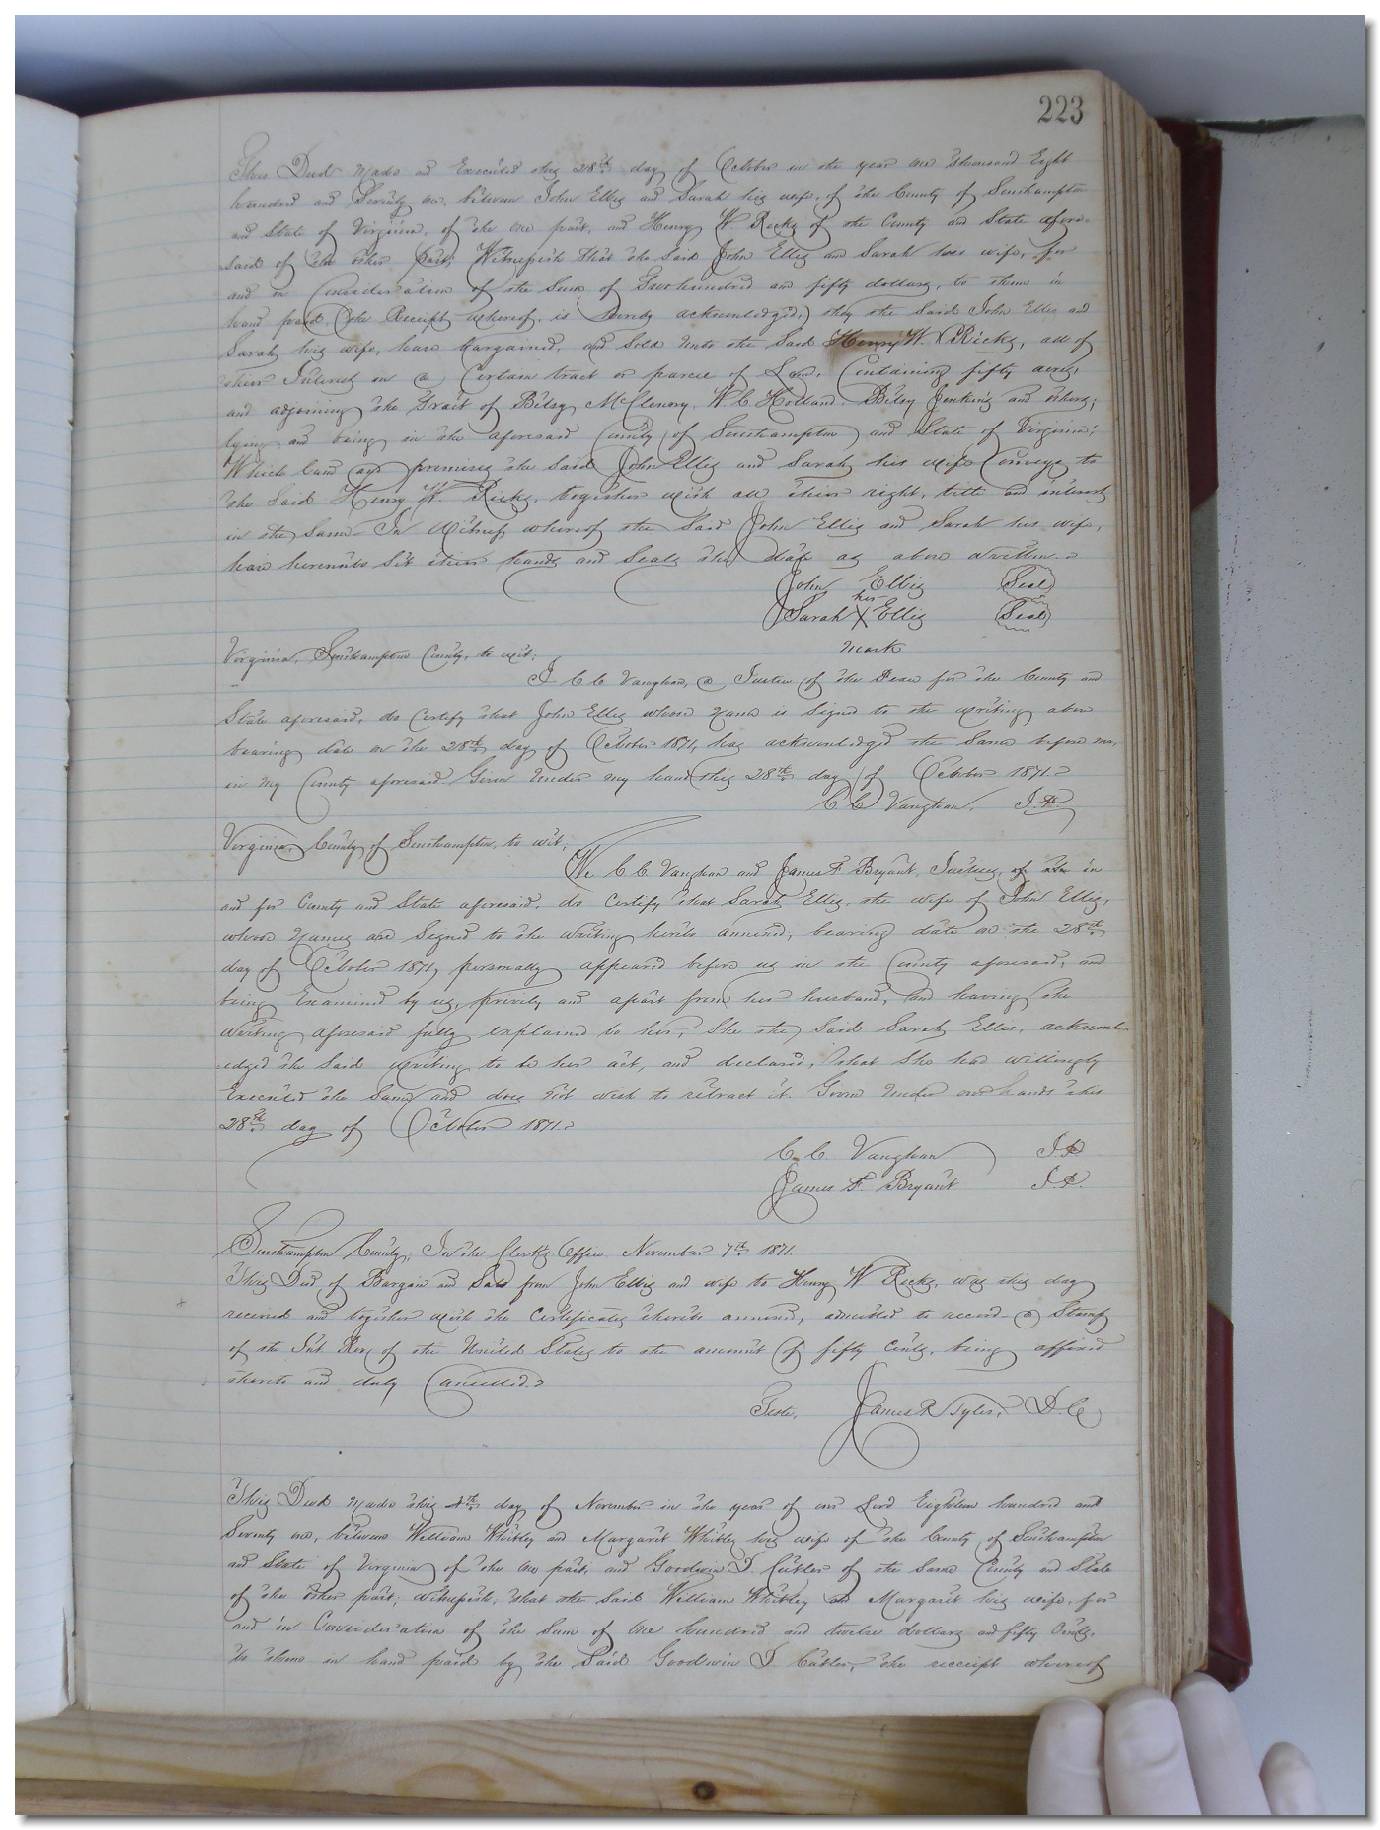 223
This Deed made and Executed this 28th day of October in the year one thousand Eight
hundred and Seventy one, between John Ellis and Sarah his wife, of the County of Southampton
and State of Virginia, of the one part, and Henry W. Ricks of the County and State afore-
said of the other part; Witnesseth that the said John Ellis and Sarah his wife, for
and in Consideration of the Sum of Two hundred and fifty dollars, to them in
hand paid, (the Receipt whereof, is hereby acknowledged,) they the Said John Ellis and
Sarah his wife, have bargained, and Sold unto the Said Henry W. Ricks, all of
their Interest in a Certain tract or parcel of Land, Containing fifty acres,
and adjoining the Tract of Betsy McClenery, W. C. Holland, Betsy Jenkins and others;
lying and being in the aforesaid County of Southampton and State of Virginia;
Which land and premises the said John Ellis and Sarah his wife Conveys to
the said Henry W. Ricks, together with all their right, title and interest
in the Same. In Witness whereof the Said John Ellis and Sarah his wife,
have hereunto Set their hands and Seals the date as above written.
John Ellis (Seal)
her
Sarah X Ellis (Seal)
mark
Virginia, Southampton County, to wit;
I C C Vaughan, a Justice of the Peace for the County and
State aforesaid, do Certify that John Ellis whose name is Signed to the writing above
bearing date on the 28th day of October 1871, has acknowledged the Same before me,
in my County aforesaid. Given under my hand this 28th day of October 1871.
C C Vaughan, J.P.
Virginia, County of Southampton, to wit;
We C. C. Vaughan and James F Bryant, Justices, of the in
and for County and State aforesaid, do Certify that Sarah Ellis, the wife of John Ellis,
whose names are Signed to the writing hereto annexed, bearing date on the 28th
day of October 1871, personally appeared before us in the County aforesaid, and
being Examined by us, privily and apart from her husband, and having the
writing aforesaid fully explained to her, She the Said Sarah Ellis, acknowl-
edged the Said writing to be her act, and declared, that She had willingly
Executed the Same and does not wish to retract it. Given under our hands this
28th day of October 1871.
C. C. Vaughan J.P.
James F. Bryant J.P.
Southampton County; In the Clerk's Office November 7th 1871.
This Deed of Bargain and Sale from John Ellis and wife to Henry W Ricks, was this day
received and together with the Certificates thereto annexed, admitted to record. a Stamp
of the Int Rev of the United States to the amount of fifty Cents, being affixed
thereto and duly Cancelled.
Teste, James R Tyler, D.C.
This Deed made this 4th day of November in the year of our Lord Eighteen hundred and
Seventy one, between William Whitley and Margaret Whitley his wife of the County of Southampton
and State of Virginia of the one part, and Goodwin I. Cutler of the Same County and State
of the other part; witnesseth, that the Said William Whitley and Margaret his wife, for
and in Consideration of the Sum of one hundred and twelve dollars and fifty Cents,
to them in hand paid by the Said Goodwin I. Cutler, the receipt whereof